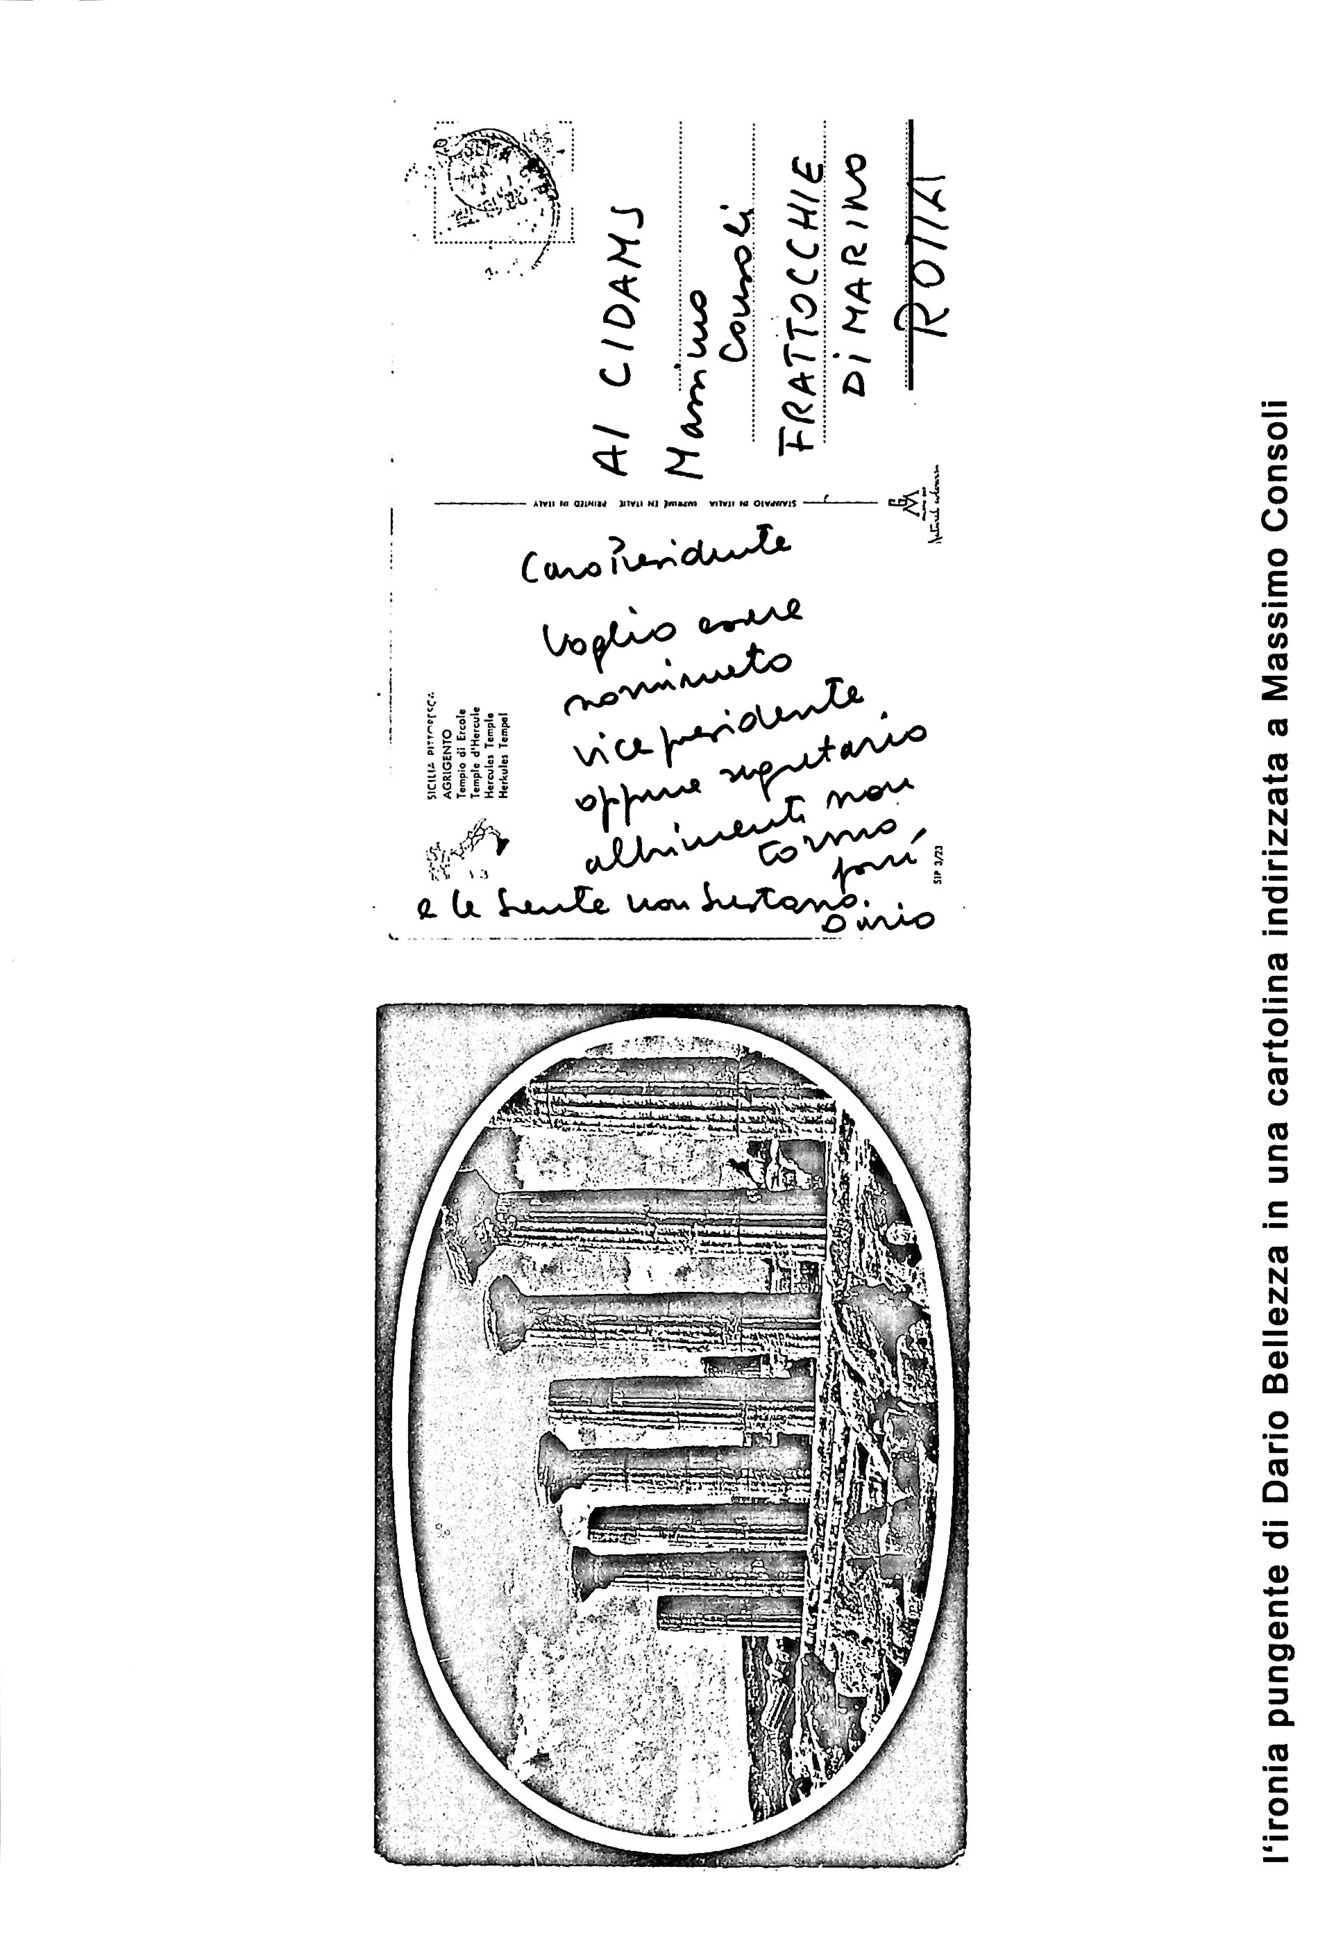 SICILIA PITTORESCA
AGRIGENTO
Tempio di Ercole
Temple d'Hercule
Hercules Temple
Herkules Tempel
Caro Presidente
Voglio essere
nominato
vice presidente
oppure segretario
altrimenti non
torno
più
e le Sente non Sustano.
Dario
SIP 3/23
STAMPATO IN ITALIA IMPRIMÉ EN ITALIE PRINTED IN ITALY
Al CIDAMS
Massimo
Consoli
FRATTOCCHIE
Di MARINO
ROMA
l'ironia pungente di Dario Bellezza in una cartolina indirizzata a Massimo Consoli